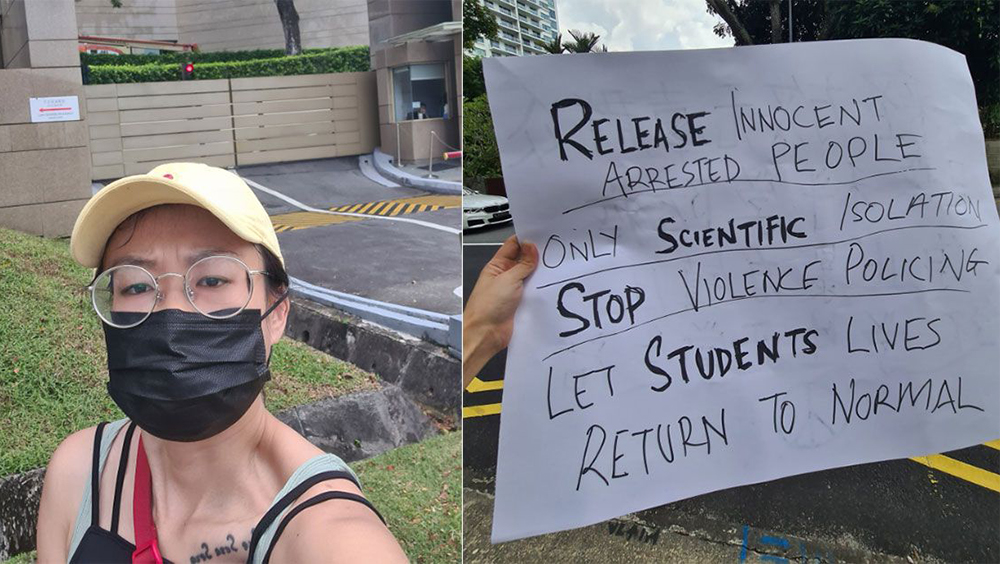 RELEASE INNOCENT
ARRESTED PEOPLE
ONLY SCIENTIFIC ISOLATION
STOP VIOLENCE POLICING
LET STUDENTS LIVES
RETURN TO NORMAL